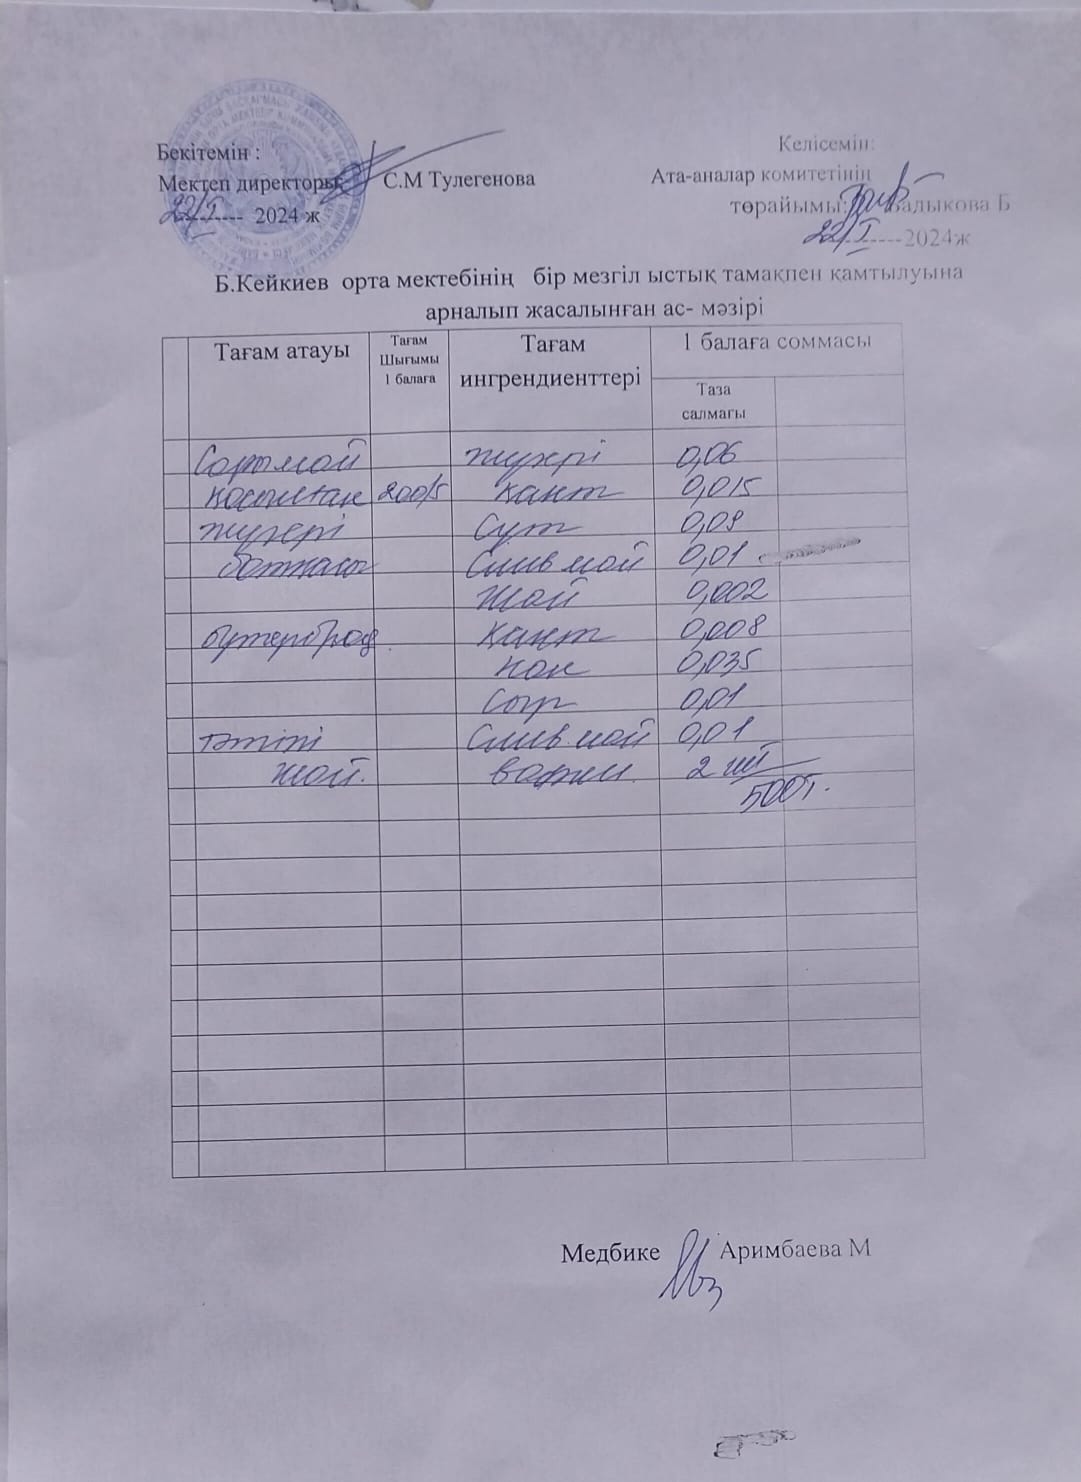 Бекітемін :
Мектеп директоры: С.М Тулегенова
22/I 2024 ж
Келісемін:
Ата-аналар комитетінің
төрайымы: Бадыкова Б
22/I 2024ж
Б.Кейкиев орта мектебінің бір мезгіл ыстық тамақпен қамтылуына
арналып жасалынған ас- мәзірі
Тағам атауы
Тағам
Шығымы
1 балаға
Тағам
ингрендиенттері
1 балаға соммасы
Таза
салмағы
Сарымай жүгері 0,06
қосылған 200/5 қант 0,015
жүгері Сүт 0,09
ботқасы Слив май 0,01
Шай 0,002
бутерброд қант 0,008
нан 0,035
Сыр 0,01
тәтті Слив май 0,01
шай. вафли 2 шт
500т.
Медбике Аримбаева М